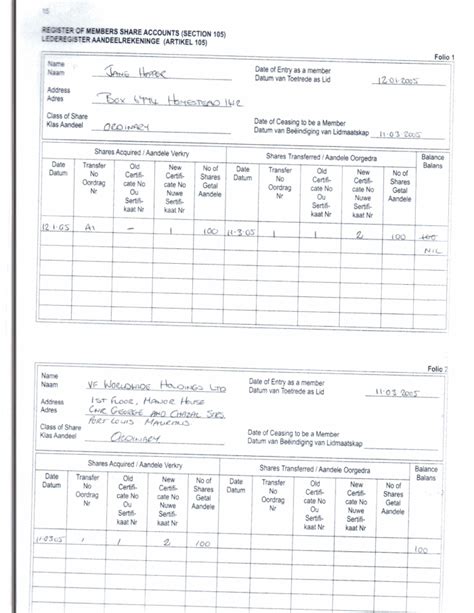 15
REGISTER OF MEMBERS SHARE ACCOUNTS (SECTION 105)
LEDEREGISTER AANDEELREKENINGE (ARTIKEL 105)
Folio 1
Name
Naam
Date of Entry as a member
Datum van Toetrede as Lid
12.01.2005
Address
Adres
Box
Class of Share
Klas Aandeel
ORDINARY
Date of Ceasing to be a Member
Datum van Beëindiging van Lidmaatskap
11-03-2005
Shares Acquired / Aandele Verkry
Shares Transferred / Aandele Oorgedra
Balance
Balans
Date Datum
Transfer No Oordrag Nr
Old Certifi- cate No Ou Sertifi- kaat Nr
New Certifi- cate No Nuwe Sertifi- kaat Nr
No of Shares Getal Aandele
Date Datum
Transfer No Oordrag Nr
Old Certifi- cate No Ou Sertifi- kaat Nr
New Certifi- cate No Nuwe Sertifi- kaat Nr
No of Shares Getal Aandele
12.1.05 A1 - 1 100 11-3.05 1 1 2 100 100
NIL
Folio 2
Name
Naam
VF WORLDWIDE HOLDINGS LTD
Date of Entry as a member
Datum van Toetrede as Lid
11-03-2005
Address
Adres
1ST FLOOR, MANOR HOUSE
CNR GEORGE AND CHAZAL STRS.
PORT LOUIS MAURITIUS
Class of Share
Klas Aandeel
ORDINARY
Date of Ceasing to be a Member
Datum van Beëindiging van Lidmaatskap
Shares Acquired / Aandele Verkry
Shares Transferred / Aandele Oorgedra
Balance
Balans
Date Datum
Transfer No Oordrag Nr
Old Certifi- cate No Ou Sertifi- kaat Nr
New Certifi- cate No Nuwe Sertifi- kaat Nr
No of Shares Getal Aandele
Date Datum
Transfer No Oordrag Nr
Old Certifi- cate No Ou Sertifi- kaat Nr
New Certifi- cate No Nuwe Sertifi- kaat Nr
No of Shares Getal Aandele
11-03.05 1 1 2 100
100